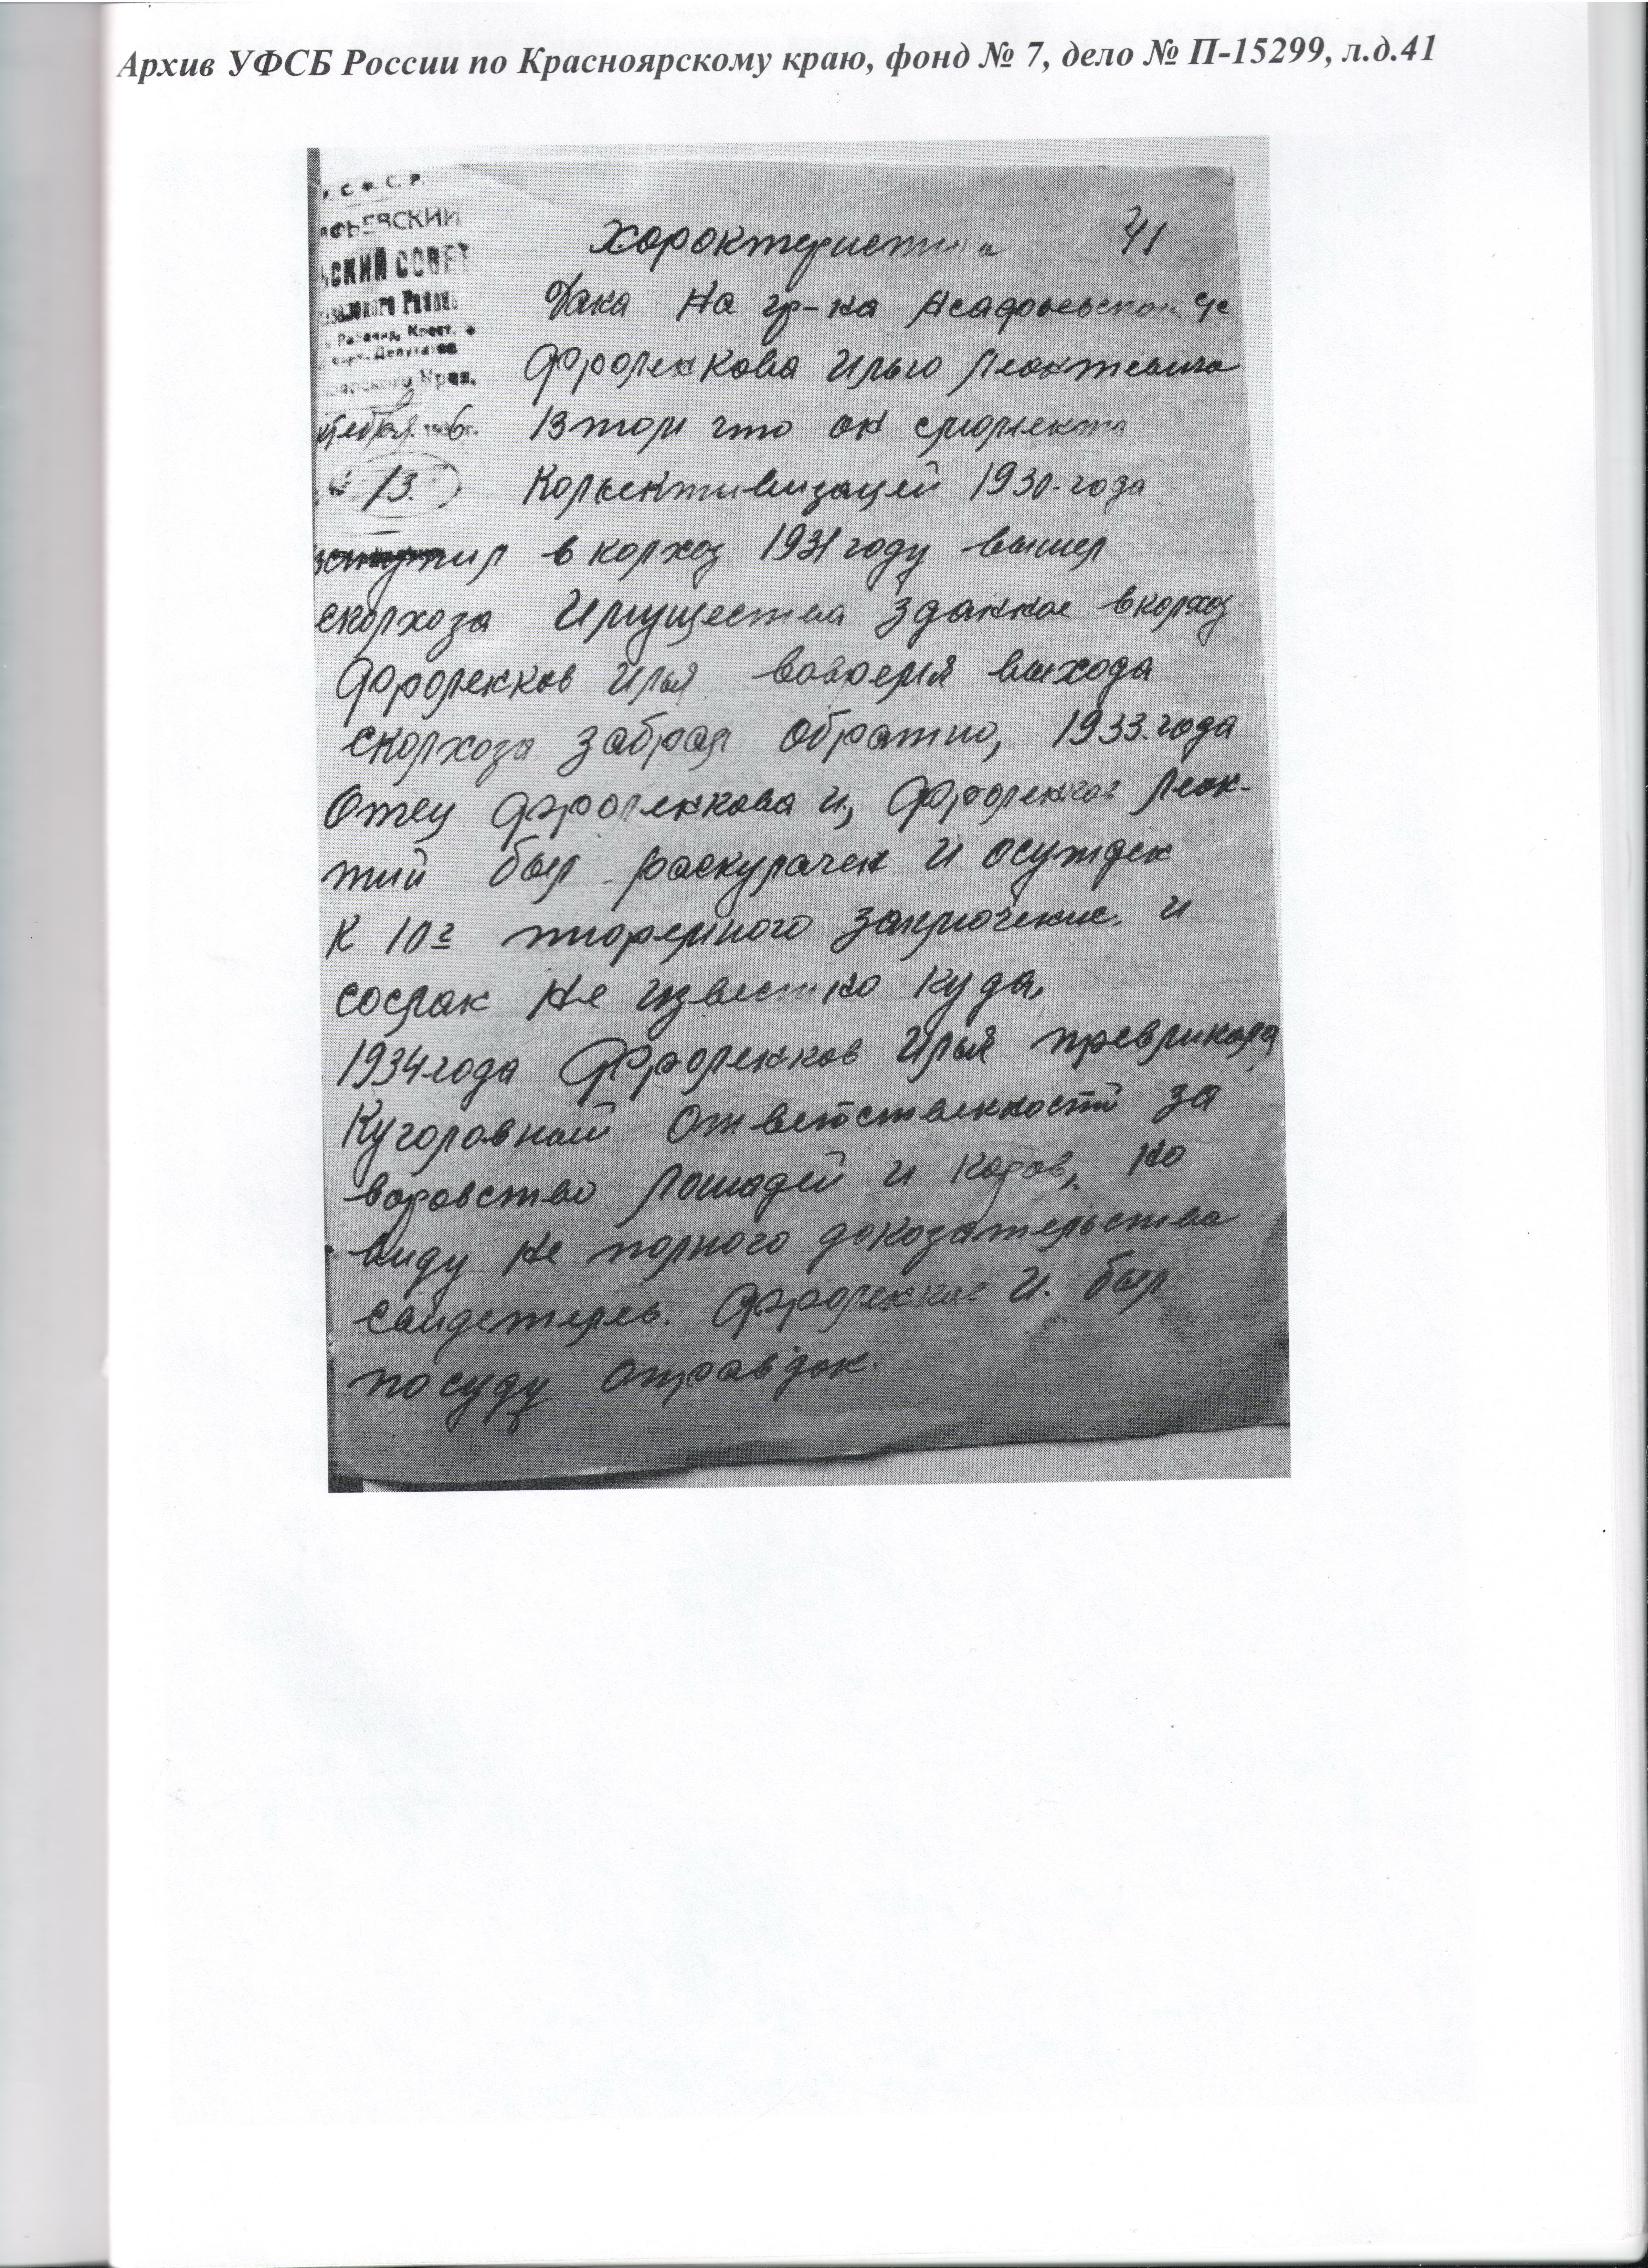 Архив УФСБ России по Красноярскому краю, фонд № 7, дело № П-15299, л.д.41
С. Ф. С. Р.
ФЬЕВСКИЙ
ЬСКИЙ СОВЕТ
Района
Рабочих, Крест. и
Депутатов
Края.
1936г.
13.
Характеристика 41
Дана на гр-на Асафьевской
Фроленкова Илью Леонтевича
В том что он с момента
Колективизацей 1930-года
в колхоз 1931 году вышел
сколхоза Имущества зданное в колхоз
Фроленков Илья вовремя выхода
сколхоза забрал обратно, 1933.года
Отец Фроленкова И, Фроленков Леон-
тий был раскулачен и осужден
К 10г тюремного заключение. и
сослан не известно куда.
1934года Фроленков Илья превликался
Куголовной Ответственностй за
воровство Лошадей и коров, но
виду не полного доказательства
свидетель. Фроленков И. был
посуду оправдан.